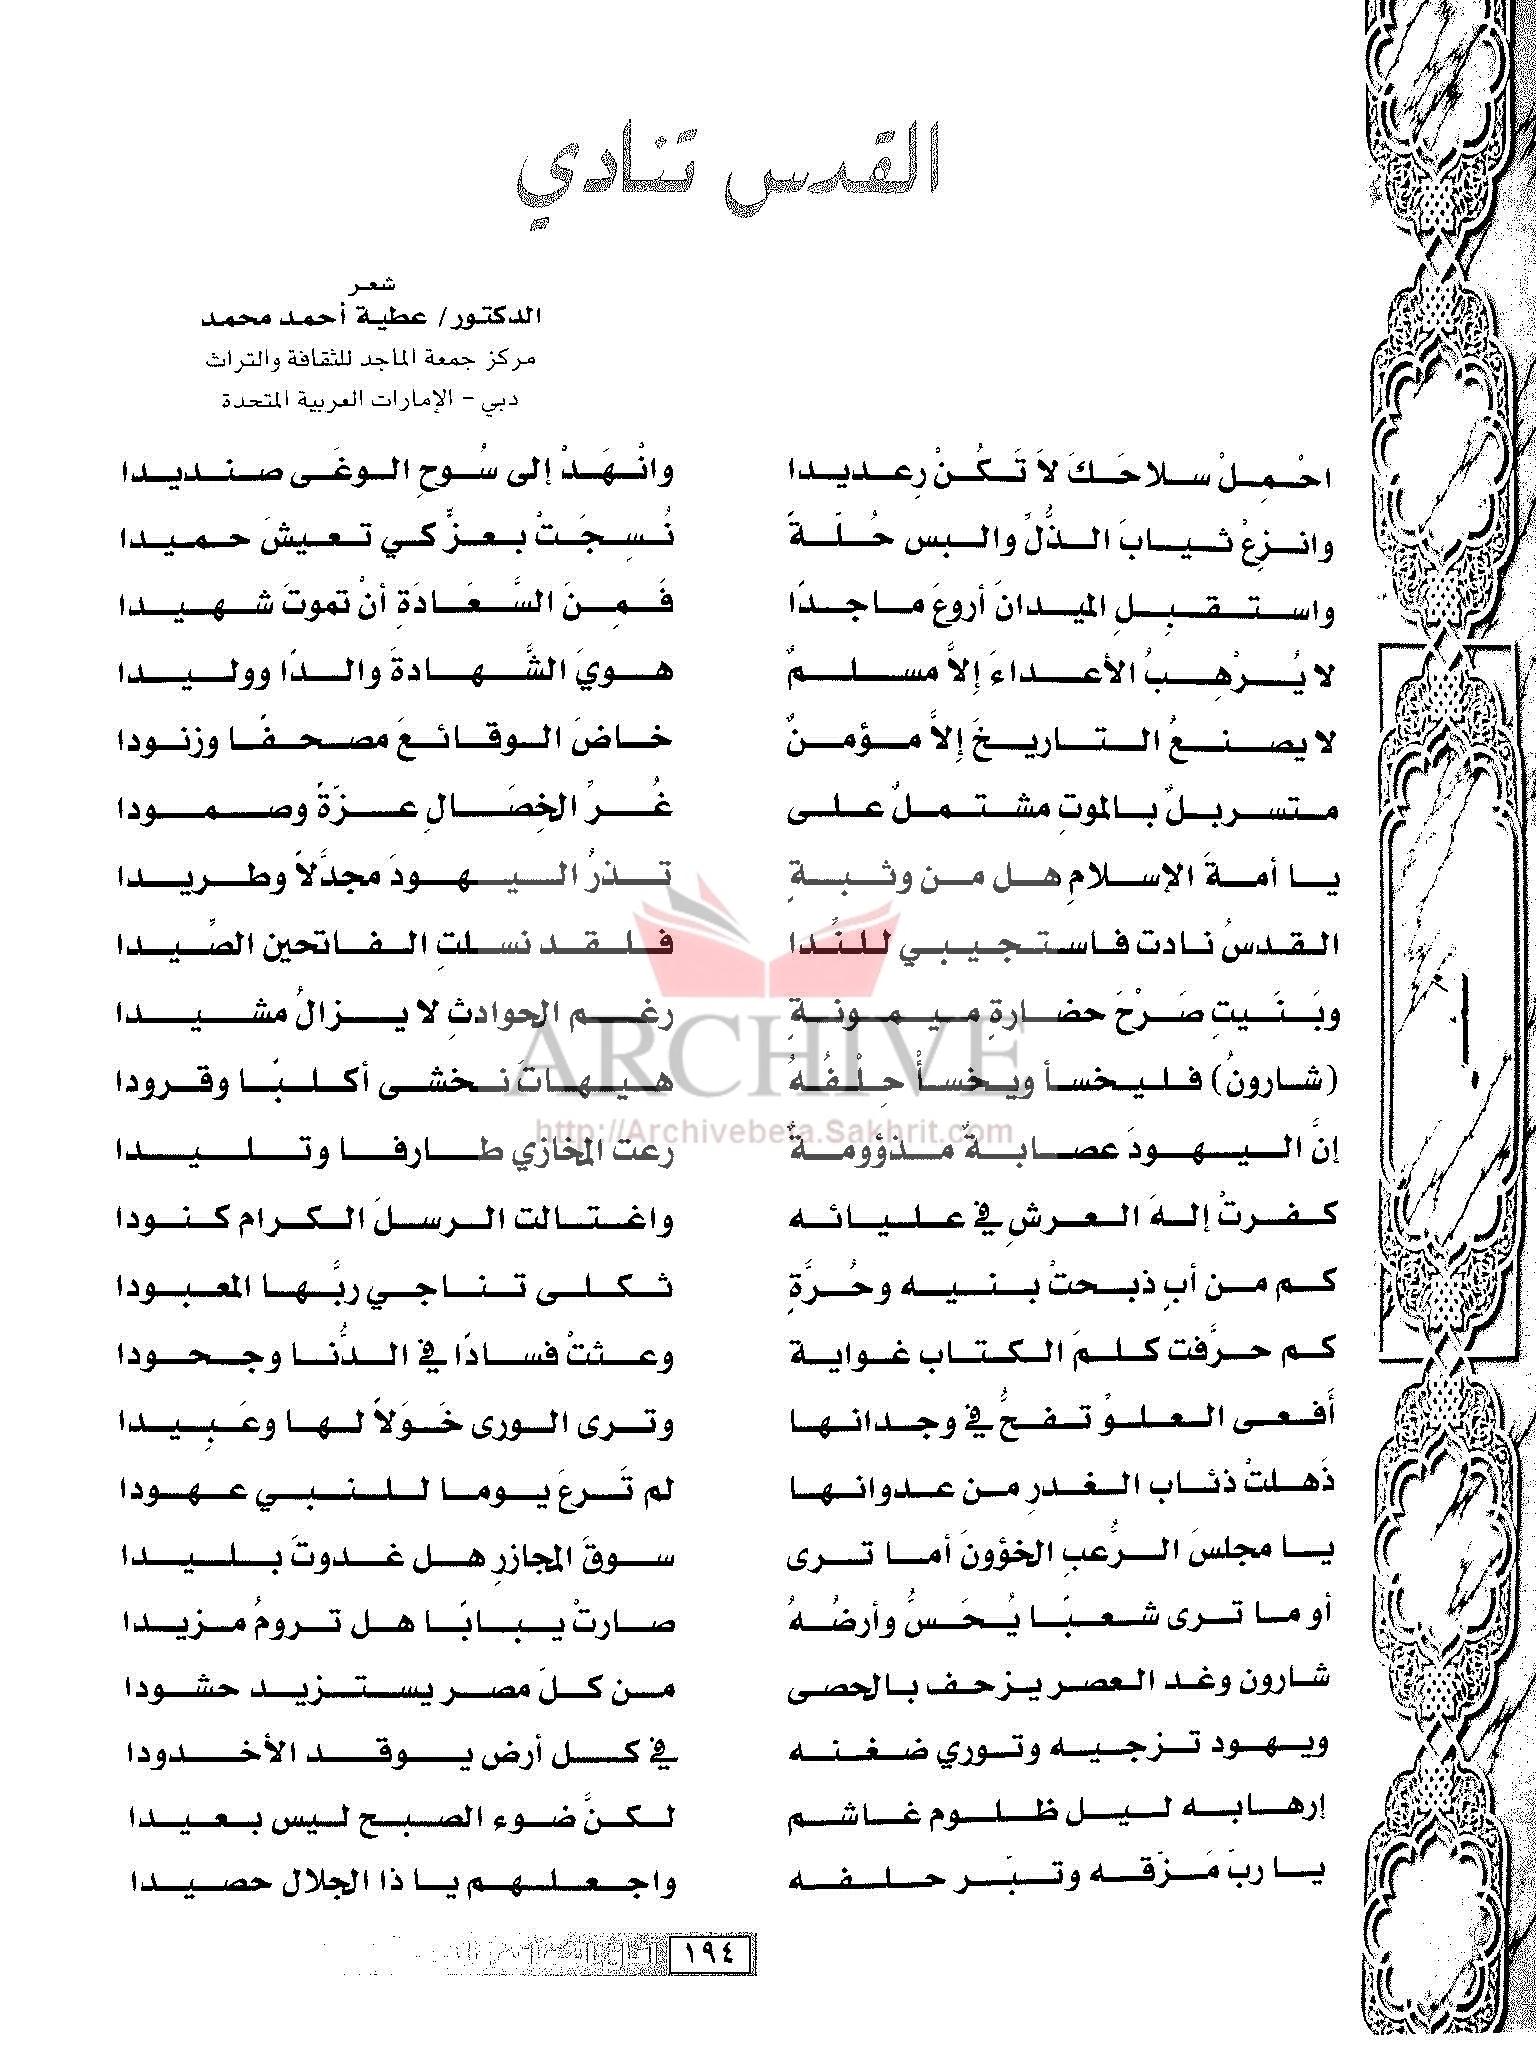 القدس تنادي
شعر
الدكتور/ عطية أحمد محمد
مركز جمعة الماجد للثقافة والتراث
دبي - الإمارات العربية المتحدة
احْمِلْ سلاحَكَ لاَ تَكُنْ رِعديدا وانْهَدْ إلى سُوحِ الوغَى صنديدا
وانزِعْ ثيابَ الذُّلِّ والبس حُلَةً نُسِجَتْ بعزٍّ كي تعيشَ حميدا
واستقبِلِ الميدانَ أروعَ ماجدًا فَمِنَ السَّعَادَةِ أنْ تموتَ شهيدا
لا يُرْهِبُ الأعداءَ إلاَّ مسلمٌ هويَ الشَّهادةَ والدًا ووليدا
لا يصنعُ التاريخَ إلاَّ مؤمنٌ خاضَ الوقائعَ مصحفًا وزنودا
متسربلٌ بالموتِ مشتملٌ على غُرِّ الخِصَالِ عزَةً وصمودا
يا أمةَ الإسلامِ هل من وثبةٍ تذرُ اليهودَ مجدَّلاً وطريدا
القدسُ نادت فاستجيبي للنِّدا فلقد نسلتِ الفاتحين الصِّيدا
وبَنَيتِ صَرْحَ حضارةٍ ميمونةٍ رغم الحوادثِ لا يزالُ مشيدا
(شارونُ) فليخسأ ويخسأْ حِلْفُهُ هيهاتَ نخشى أكلبًا وقرودا
إنَّ اليهودَ عصابةٌ مذؤومةٌ رعت المخازي طارفا وتليدا
كفرتْ إلهَ العرشِ في عليائه واغتالت الرسلَ الكرام كنودا
كم من أبٍ ذبحتْ بنيه وحُرَّةٍ ثكلى تناجي ربَّها المعبودا
كم حرَّفت كلمَ الكتاب غواية وعثتْ فسادًا في الدُّنا وجحودا
أفعى العلوِّ تفحُّ في وجدانها وترى الورى خَوَلاً لها وعَبِيدا
ذَهلتْ ذئاب الغدرِ من عدوانها لم تَرعَ يوما للنبي عهودا
يا مجلسَ الرُّعبِ الخؤونَ أما ترى سوقَ المجازرِ هل غدوتَ بليدا
أو ما ترى شعبًا يُحَسُّ وأرضُهُ صارتْ يبابًا هل ترومُ مزيدا
شارون وغد العصر يزحف بالحصى من كلّ مصر يستزيد حشودا
ويهود تزجيه وتوري ضغنه في كل أرض يوقد الأخدودا
إرهابه ليل ظلوم غاشم لكنَّ ضوء الصبح ليس بعيدا
يا ربّ مَزّقه وتبّر حلفه واجعلهم يا ذا الجلال حصيدا
ARCHIVE
http://Archivebeta.Sakhrit.com
١٩٤